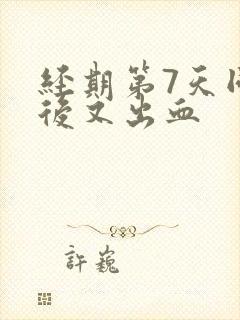 經期第7天同
後又出血
許巍